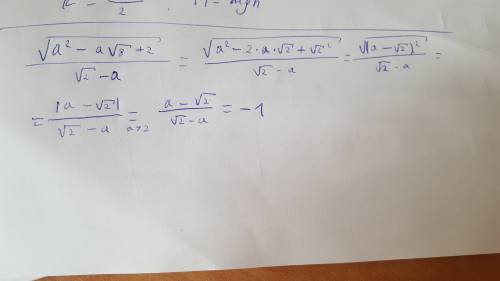 2
\frac{\sqrt{a^2 - a\sqrt{8} + 2}}{\sqrt{2} - a} = \frac{\sqrt{a^2 - 2 \cdot a \cdot \sqrt{2} + \sqrt{2}^2}}{\sqrt{2} - a} = \frac{\sqrt{(a - \sqrt{2})^2}}{\sqrt{2} - a} =
= \frac{|a - \sqrt{2}|}{\sqrt{2} - a} \underset{a>2}{=} \frac{a - \sqrt{2}}{\sqrt{2} - a} = -1